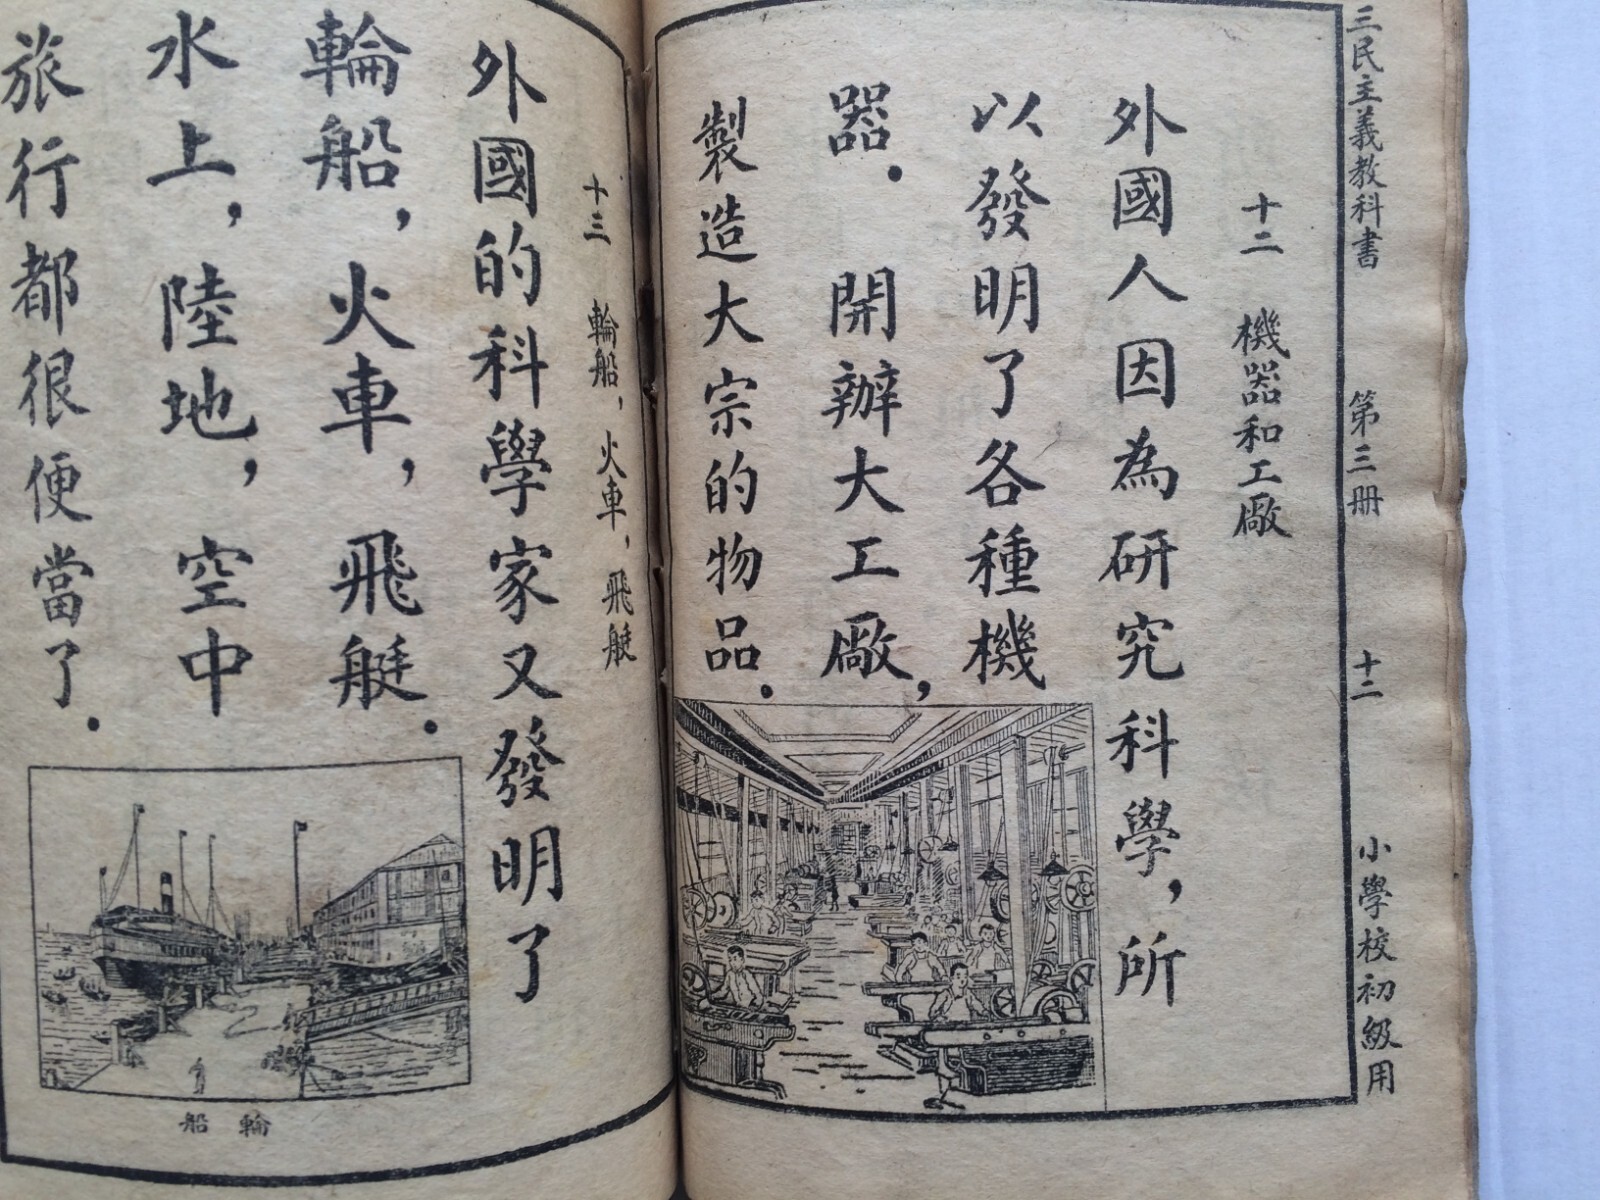 三民主義教科書 第三冊 十二 小學校初級用
十二 機器和工廠
外國人因為研究科學，所
以發明了各種機
器．開辦大工廠，
製造大宗的物品．
十三 輪船，火車，飛艇
外國的科學家又發明了
輪船，火車，飛艇．
水上，陸地，空中
旅行都很便當了．
船輪